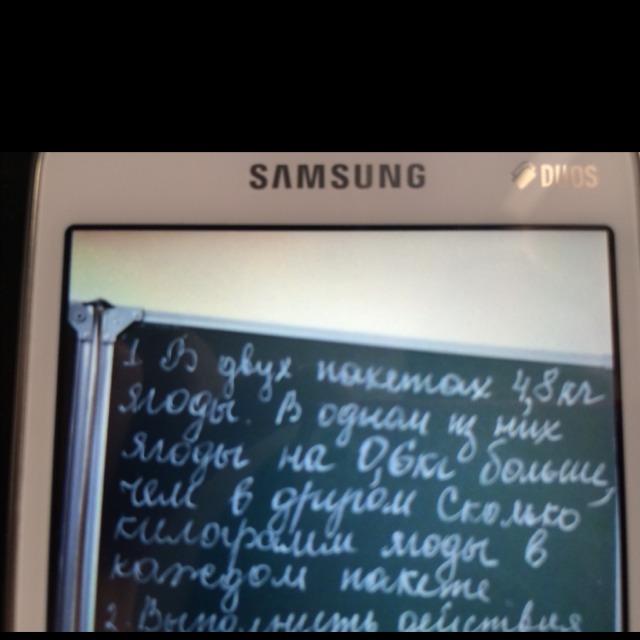 SAMSUNG DUOS
1 В двух пакетах 4,8 кг
ягоды. В одном из них
ягоды на 0,6 кг больше,
чем в другом Сколько
килограмм ягоды в
каждом пакете
2. Выполнить действия